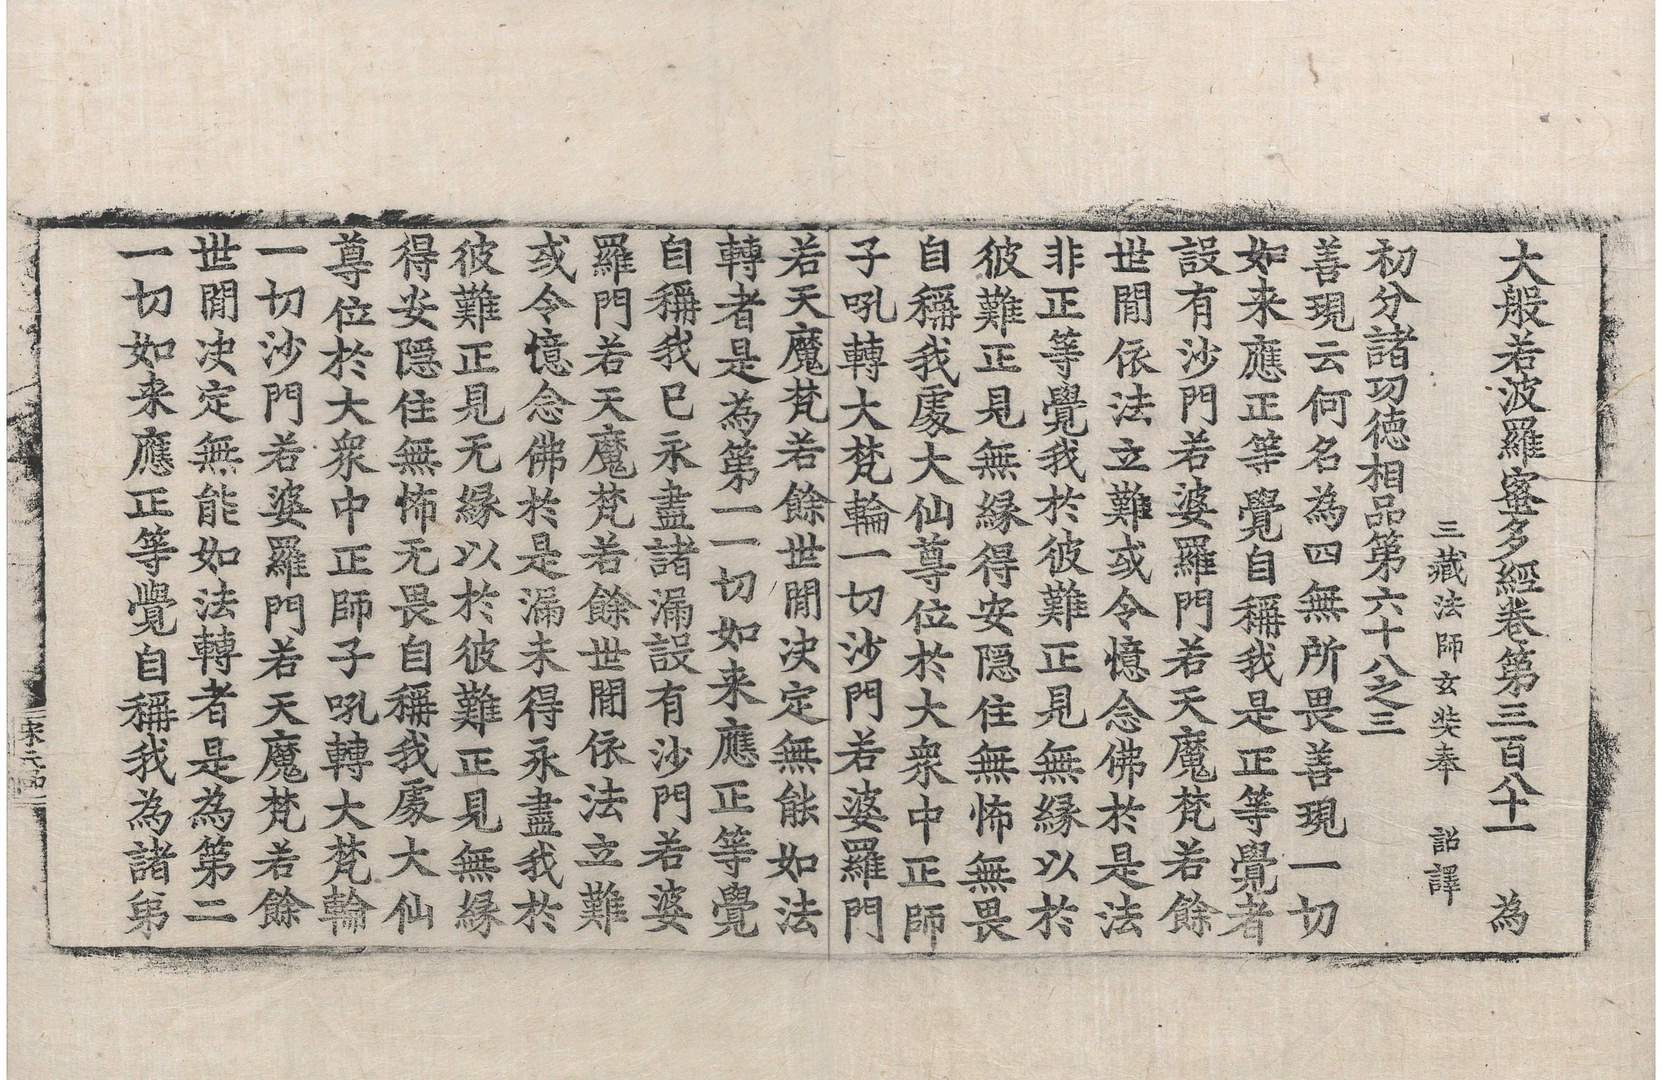 大般若波羅蜜多經卷第三百八十一 為
三藏法師玄奘奉 詔譯
初分諸功德相品第六十八之三
善現云何名為四無所畏善現一切
如来應正等覺自稱我是正等覺者
設有沙門若婆羅門若天魔梵若餘
世間依法立難或令憶念佛於是法
非正等覺我於彼難正見無縁以於
彼難正見無縁得安隱住無怖無畏
自稱我處大仙尊位於大衆中正師
子吼轉大梵輪一切沙門若婆羅門
若天魔梵若餘世間决定無能如法
轉者是為第一一切如来應正等覺
自稱我已永盡諸漏設有沙門若婆
羅門若天魔梵若餘世間依法立難
或令憶念佛於是漏未得永盡我於
彼難正見无縁以於彼難正見無縁
得安隱住無怖无畏自稱我處大仙
尊位於大衆中正師子吼轉大梵輪
一切沙門若婆羅門若天魔梵若餘
世間决定無能如法轉者是為第二
一切如来應正等覺自稱我為諸弟